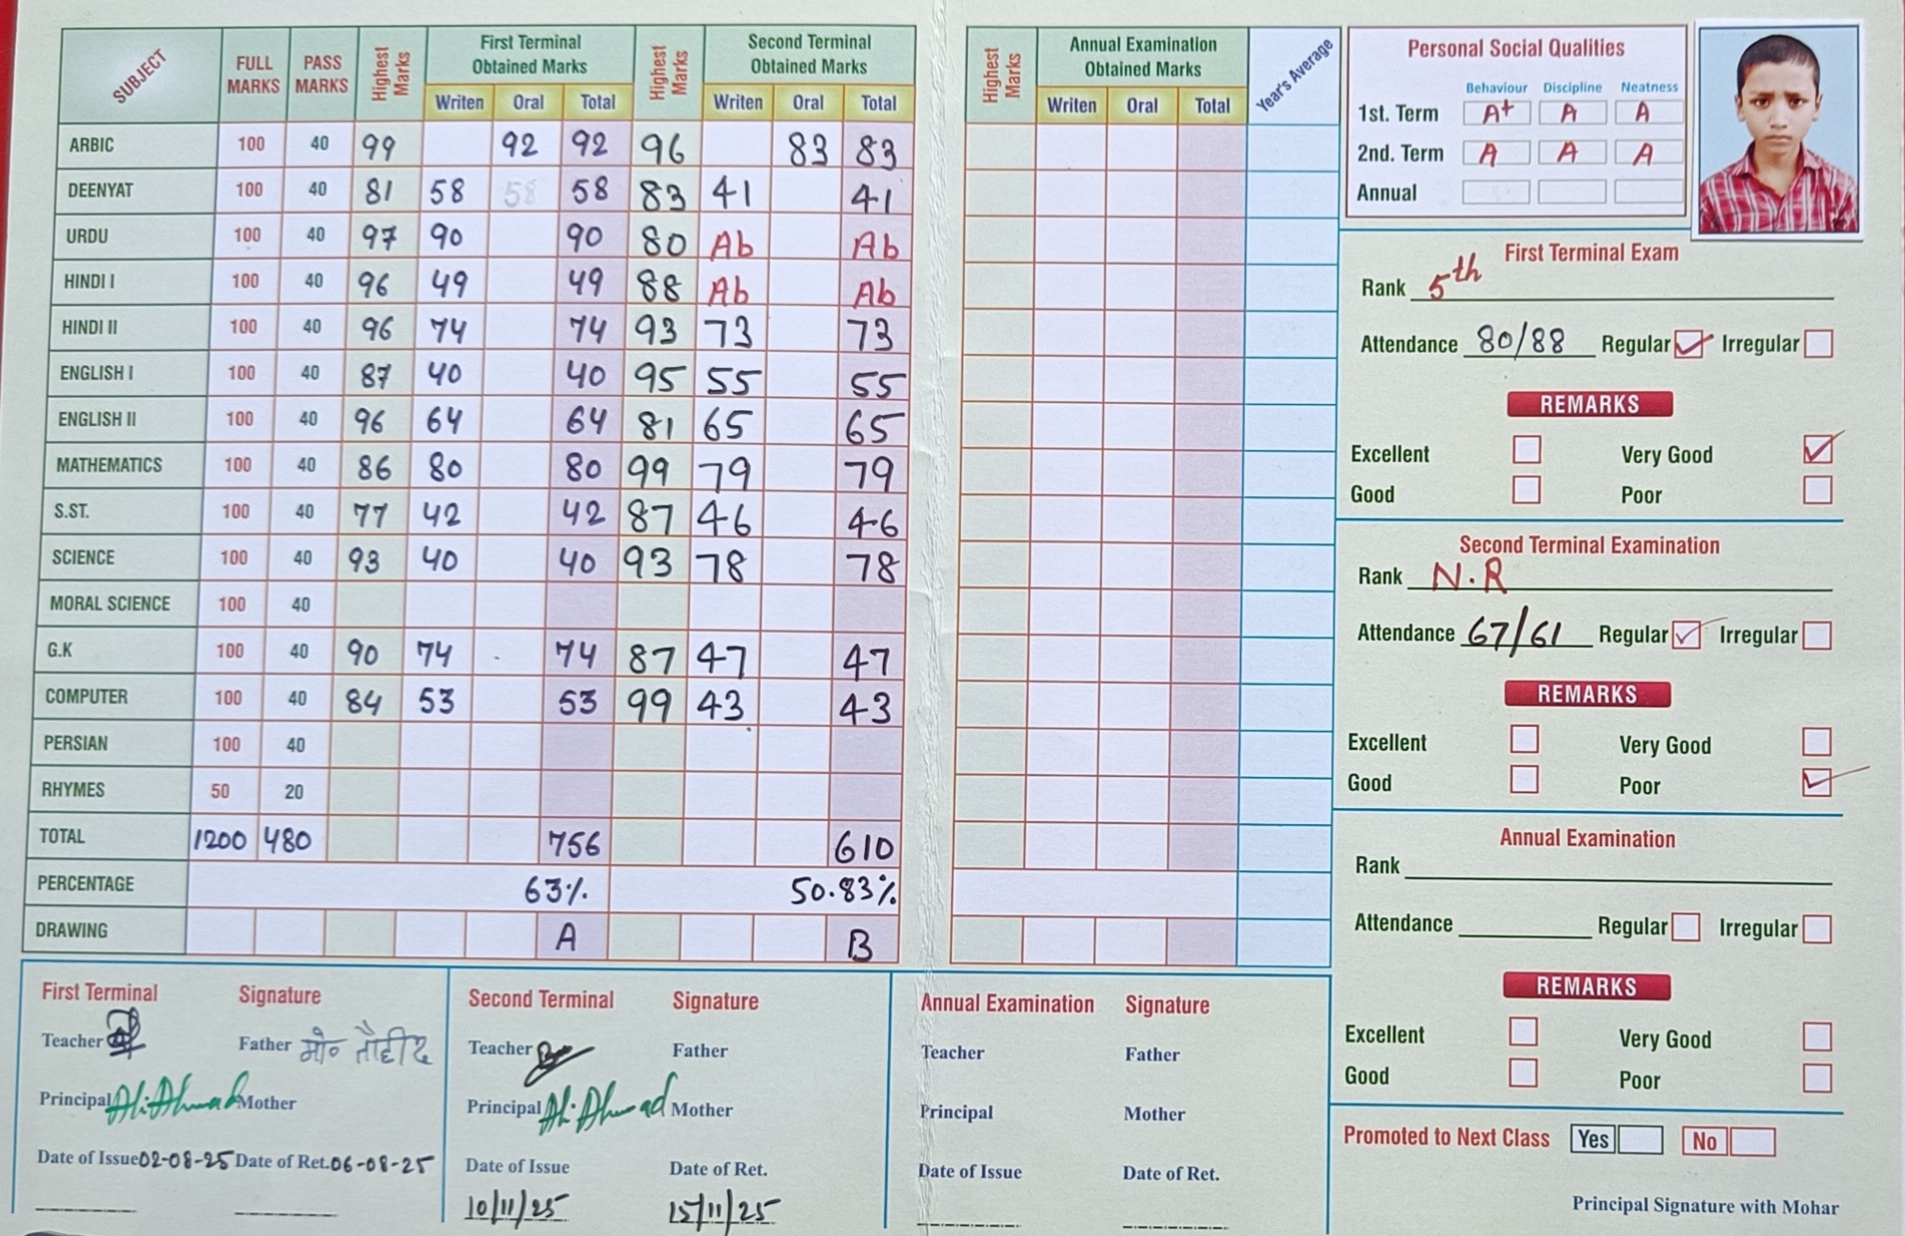 SUBJECT FULL MARKS PASS MARKS Highest Marks First Terminal Obtained Marks Writen Oral Total Highest Marks Second Terminal Obtained Marks Writen Oral Total
ARBIC 100 40 99 92 92 96 83 83
DEENYAT 100 40 81 58 58 58 83 41 41
URDU 100 40 97 90 90 80 Ab Ab
HINDI I 100 40 96 49 49 88 Ab Ab
HINDI II 100 40 96 74 74 93 73 73
ENGLISH I 100 40 87 40 40 95 55 55
ENGLISH II 100 40 96 64 64 81 65 65
MATHEMATICS 100 40 86 80 80 99 79 79
S.ST. 100 40 77 42 42 87 46 46
SCIENCE 100 40 93 40 40 93 78 78
MORAL SCIENCE 100 40
G.K 100 40 90 74 74 87 47 47
COMPUTER 100 40 84 53 53 99 43 43
PERSIAN 100 40
RHYMES 50 20
TOTAL 1200 480 756 610
PERCENTAGE 63% 50.83%
DRAWING A B
Highest Marks Annual Examination Obtained Marks Writen Oral Total Year's Average
Personal Social Qualities
Behaviour Discipline Neatness
1st. Term A+ A A
2nd. Term A A A
Annual
First Terminal Exam
Rank 5th
Attendance 80/88 Regular Irregular
REMARKS
Excellent Very Good
Good Poor
Second Terminal Examination
Rank N.R
Attendance 67/61 Regular Irregular
REMARKS
Excellent Very Good
Good Poor
Annual Examination
Rank
Attendance Regular Irregular
REMARKS
Excellent Very Good
Good Poor
Promoted to Next Class Yes No
Principal Signature with Mohar
First Terminal Signature
Teacher Father मो० तौहीद
Principal Ali Ahmad Mother
Date of Issue 02-08-25 Date of Ret. 06-08-25
Second Terminal Signature
Teacher Father
Principal Ali Ahmad Mother
Date of Issue Date of Ret.
10/11/25 15/11/25
Annual Examination Signature
Teacher Father
Principal Mother
Date of Issue Date of Ret.